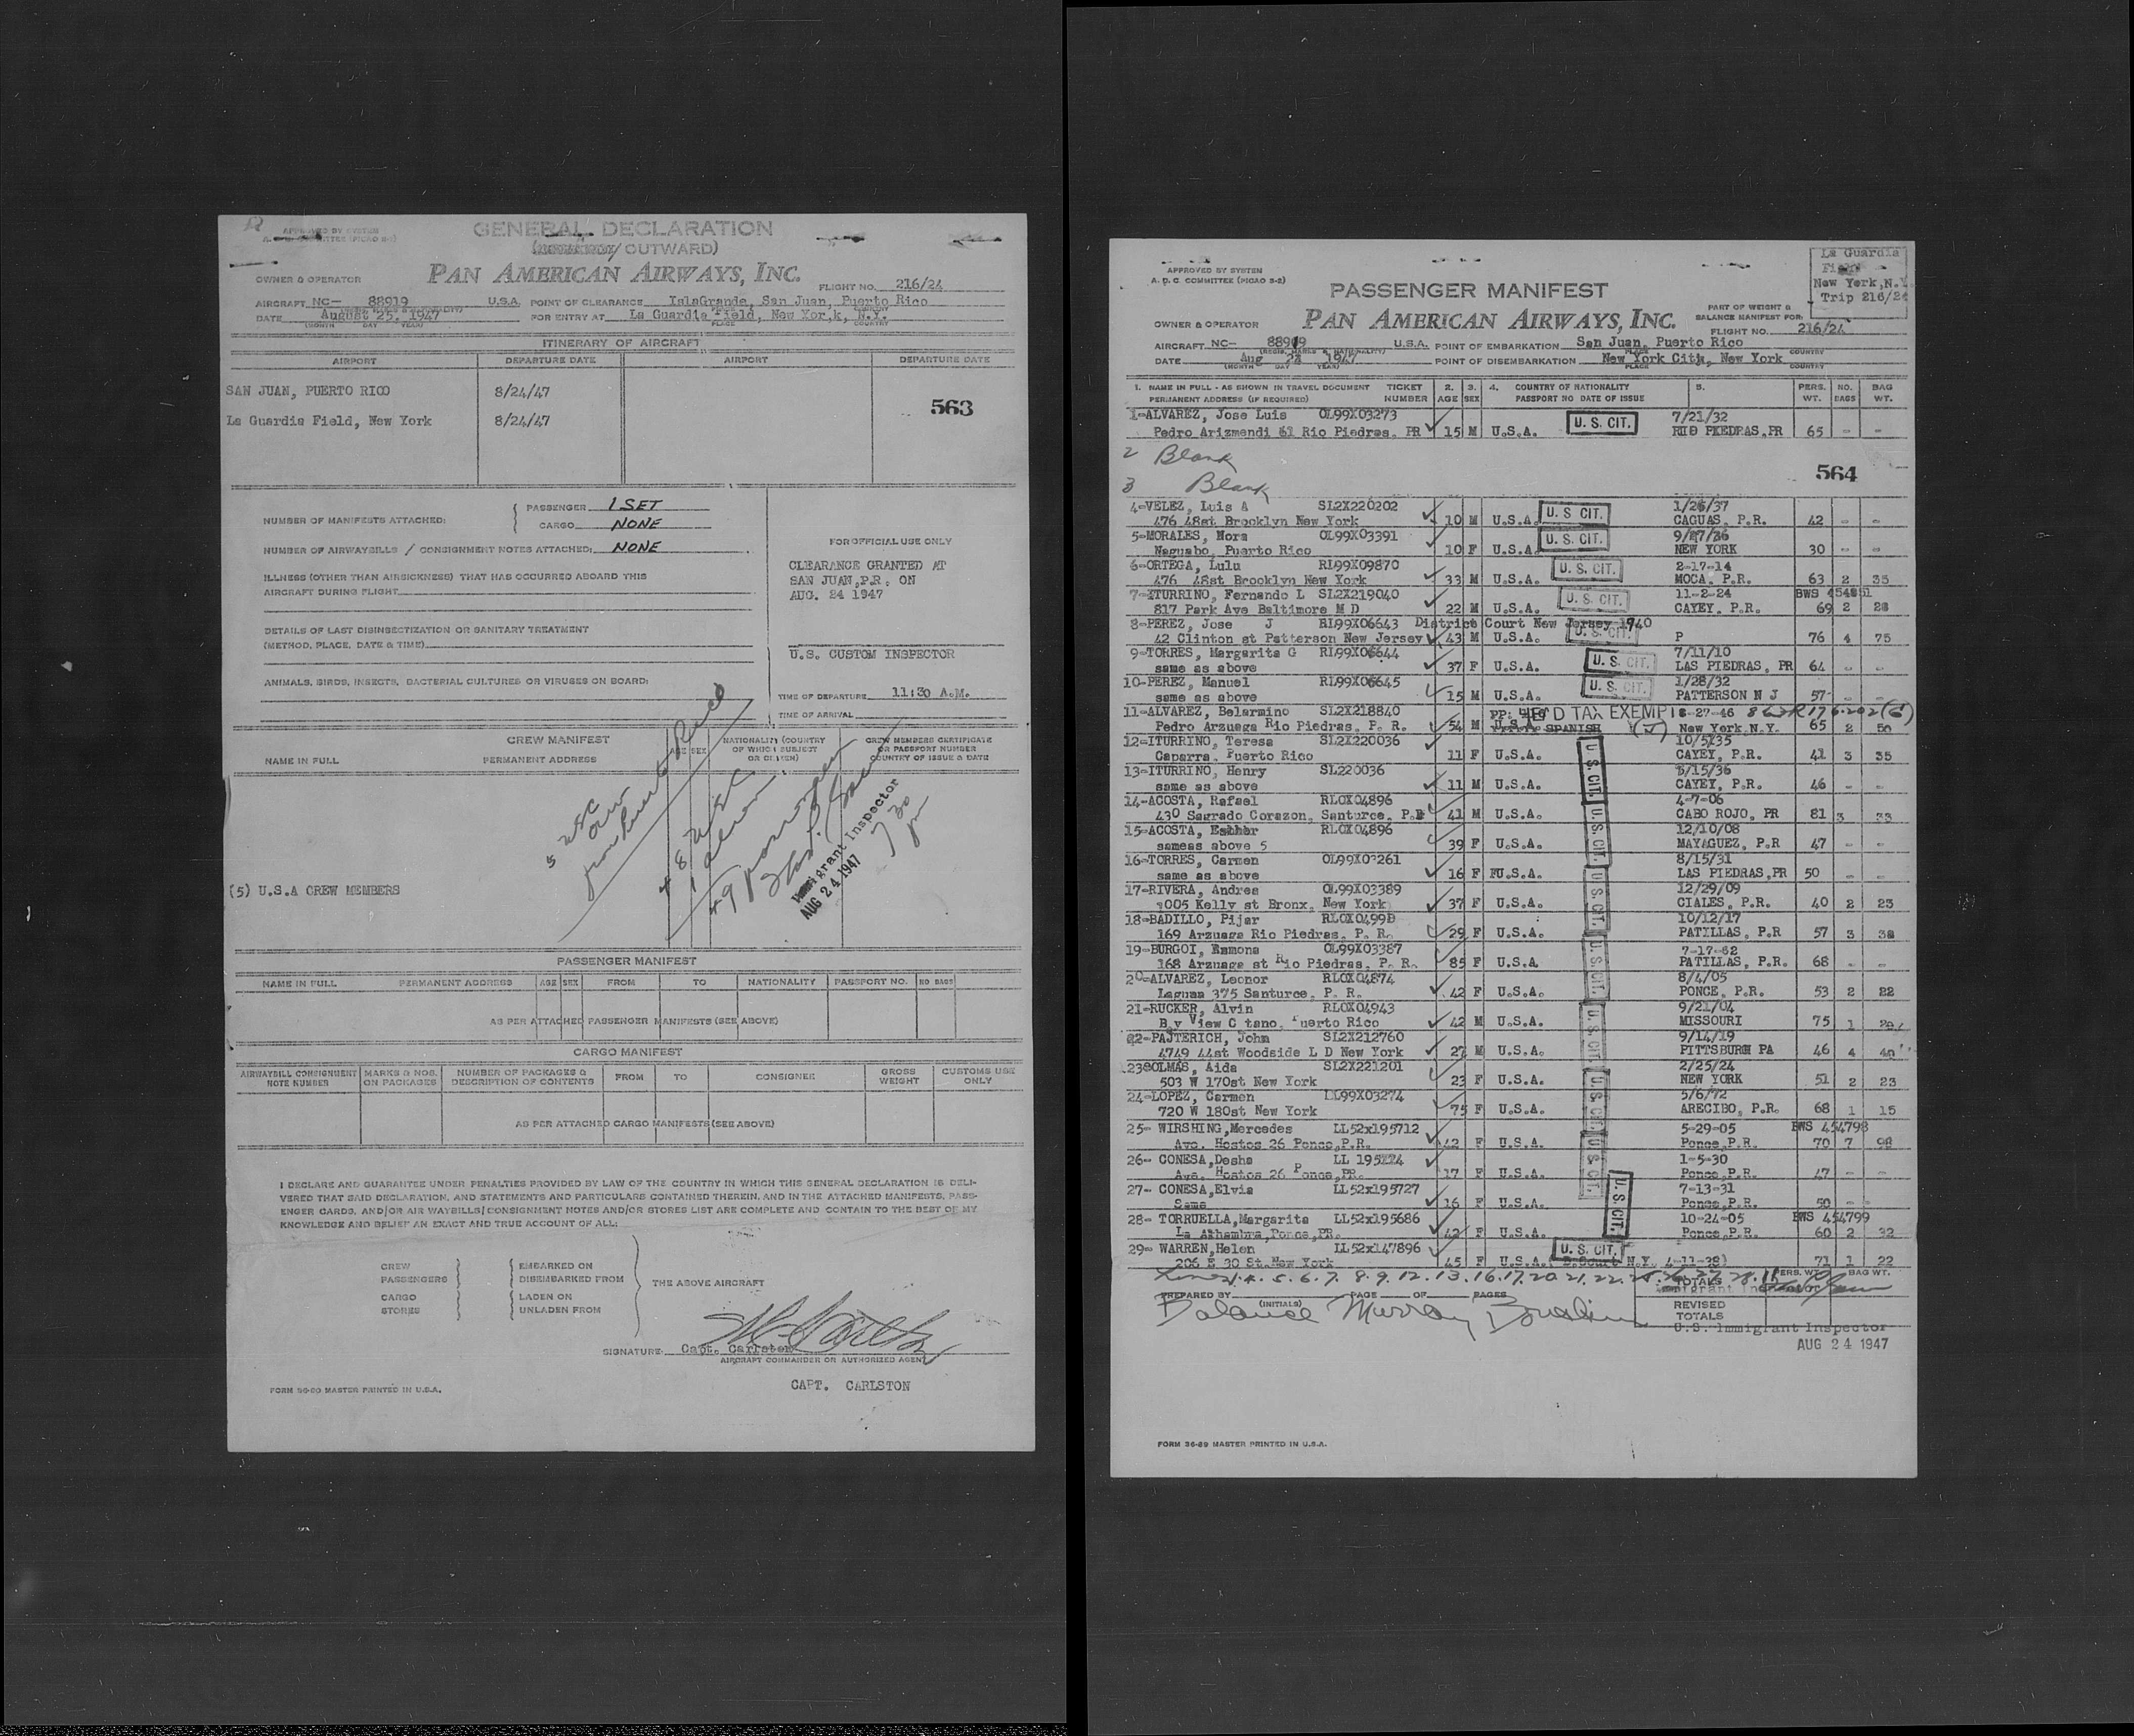 APPROVED BY SYSTEM
GENERAL DECLARATION
OUTWARD)
PAN AMERICAN AIRWAYS, INC.
OWNER & OPERATOR
FLIGHT NO. 216/24
AIRCRAFT NC- 88919 U.S.A. POINT OF CLEARANCE IslaGrande, San Juan, Puerto Rico
DATE August 25, 1947 FOR ENTRY AT La Guardia Field, New Yor,k, N.Y.
(MONTH DAY YEAR) PLACE COUNTRY
ITINERARY OF AIRCRAFT
AIRPORT DEPARTURE DATE AIRPORT DEPARTURE DATE
SAN JUAN, PUERTO RICO 8/24/47
563
La Guardia Field, New York 8/24/47
NUMBER OF MANIFESTS ATTACHED: PASSENGER 1 SET
CARGO NONE
NUMBER OF AIRWAYBILLS / CONSIGNMENT NOTES ATTACHED: NONE
FOR OFFICIAL USE ONLY
CLEARANCE GRANTED AT
SAN JUAN,P.R. ON
AUG. 24 1947
ILLNESS (OTHER THAN AIRSICKNESS) THAT HAS OCCURRED ABOARD THIS
AIRCRAFT DURING FLIGHT
DETAILS OF LAST DISINSECTIZATION OR SANITARY TREATMENT
(METHOD, PLACE, DATE & TIME)
U.S. CUSTOM INSPECTOR
ANIMALS, BIRDS, INSECTS, BACTERIAL CULTURES OR VIRUSES ON BOARD:
TIME OF DEPARTURE 11:30 A.M.
TIME OF ARRIVAL
CREW MANIFEST
NAME IN FULL PERMANENT ADDRESS AGE SEX NATIONALITY (COUNTRY OF WHICH SUBJECT OR CITIZEN) CREW MEMBERS CERTIFICATE OR PASSPORT NUMBER COUNTRY OF ISSUE & DATE
5 USC
from Puerto Rico
Immigrant Inspector
AUG 24 1947
7 30
pm
(5) U.S.A CREW MEMBERS
PASSENGER MANIFEST
NAME IN FULL PERMANENT ADDRESS AGE SEX FROM TO NATIONALITY PASSPORT NO. NO BAGS
AS PER ATTACHED PASSENGER MANIFESTS (SEE ABOVE)
CARGO MANIFEST
AIRWAYBILL CONSIGNMENT NOTE NUMBER MARKS & NOS. ON PACKAGES NUMBER OF PACKAGES & DESCRIPTION OF CONTENTS FROM TO CONSIGNEE GROSS WEIGHT CUSTOMS USE ONLY
AS PER ATTACHED CARGO MANIFESTS (SEE ABOVE)
I DECLARE AND GUARANTEE UNDER PENALTIES PROVIDED BY LAW OF THE COUNTRY IN WHICH THIS GENERAL DECLARATION IS DELI-
VERED THAT SAID DECLARATION, AND STATEMENTS AND PARTICULARS CONTAINED THEREIN, AND IN THE ATTACHED MANIFESTS, PASS-
ENGER CARDS, AND/OR AIR WAYBILLS/CONSIGNMENT NOTES AND/OR STORES LIST ARE COMPLETE AND CONTAIN TO THE BEST OF MY
KNOWLEDGE AND BELIEF AN EXACT AND TRUE ACCOUNT OF ALL:
CREW EMBARKED ON
PASSENGERS DISEMBARKED FROM THE ABOVE AIRCRAFT
CARGO LADEN ON
STORES UNLADEN FROM
SIGNATURE: Capt. Carlston
AIRCRAFT COMMANDER OR AUTHORIZED AGENT
CAPT. CARLSTON
FORM 36-80 MASTER PRINTED IN U.S.A.
La Guardia
Field
New York,N.Y.
Trip 216/24
APPROVED BY SYSTEM
A. P. C. COMMITTEE (PICAO 3-2)
PASSENGER MANIFEST
PART OF WEIGHT &
BALANCE MANIFEST FOR:
OWNER & OPERATOR PAN AMERICAN AIRWAYS, INC. FLIGHT NO. 216/24
AIRCRAFT NC- 88919 U.S.A. POINT OF EMBARKATION San Juan, Puerto Rico
DATE Aug 1947 POINT OF DISEMBARKATION New York City, New York
(MONTH DAY YEAR) PLACE COUNTRY
1. NAME IN FULL - AS SHOWN IN TRAVEL DOCUMENT TICKET 2. 3. 4. COUNTRY OF NATIONALITY 5. PERS. NO. BAG
PERMANENT ADDRESS (IF REQUIRED) NUMBER AGE SEX PASSPORT NO DATE OF ISSUE WT. BAGS WT.
1-ALVAREZ, Jose Luis OL99X03273 U. S. CIT. 7/21/32
Pedro Arizmendi 61 Rio Piedras, PR 15 M U.S.A. RIO PIEDRAS,PR 65 - -
2 Blank
3 Blank
564
4-VELEZ, Luis A SL2X220202 U. S CIT. 1/26/37
476 48st Brooklyn New York 10 M U.S.A. CAGUAS, P.R. 42 - -
5-MORALES, Nora OL99X03391 U. S. CIT. 9/27/36
Naguabo, Puerto Rico 10 F U.S.A. NEW YORK 30 - -
6-ORTEGA, Lulu RL99X09870 U. S. CIT. 2-17-14
476 48st Brooklyn New York 33 M U.S.A. MOCA, P.R. 63 2 35
7-ITURRINO, Fernando L SL2X219040 U. S. CIT. 11-2-24 BWS 454851
817 Park Ave Baltimore M D 22 M U.S.A. CAYEY, P.R. 69 2 28
8-PEREZ, Jose J RL99X06643 District Court New Jersey 1940
42 Clinton st Patterson New Jersey 43 M U.S.A. U. S. CIT. P 76 4 75
9-TORRES, Margarita G RL99X06644 U. S. CIT. 7/11/10
same as above 37 F U.S.A. LAS PIEDRAS, PR 64 - -
10-PEREZ, Manuel RL99X06645 U. S. CIT. 1/28/32
same as above 15 M U.S.A. PATTERSON N J 57 - -
11-ALVAREZ, Belarmino SL2X218840 HEAD TAX EXEMPT 8-27-46
Pedro Arzuaga Rio Piedras, P. R. 54 M SPANISH New York,N.Y. 65 2 50
12-ITURRINO, Teresa SL2X220036 10/5/35
Caparra, Puerto Rico 11 F U.S.A. CAYEY, P.R. 41 3 35
13-ITURRINO, Henry SL220036 5/15/36
same as above 11 M U.S.A. CAYEY, P.R. 46 - -
14-ACOSTA, Rafael RLOX04896 4-7-06
430 Sagrado Corazon, Santurce, P.R 41 M U.S.A. CABO ROJO, PR 81 3 33
15-ACOSTA, Esther RLOX04896 12/10/08
sameas above 5 39 F U.S.A. MAYAGUEZ, P.R 47 - -
16-TORRES, Carmen OL99X03261 8/15/31
same as above 16 F FU.S.A. LAS PIEDRAS,PR 50 - -
17-RIVERA, Andrea OL99X03389 12/29/09
1005 Kelly st Bronx, New York 37 F U.S.A. CIALES, P.R. 40 2 23
18-BADILLO, Pijar RLOX0499B 10/12/17
169 Arzuaga Rio Piedras, P. R. 29 F U.S.A. PATILLAS, P.R 57 3 38
19-BURGOI, Ramona OL99X03387 7-17-62
168 Arzuaga st Rio Piedras, P. R. 85 F U.S.A PATILLAS, P.R. 68 - -
20-ALVAREZ, Leonor RLOX04874 8/4/05
Laguna 375 Santurce, P. R. 42 F U.S.A. PONCE, P.R. 53 2 22
21-RUCKER, Alvin RLOX04943 9/21/04
Bay View C tano, Puerto Rico 42 M U.S.A. MISSOURI 75 1
22-PAJTERICH, John SL2X212760 9/14/19
4749 44st Woodside L D New York 27 M U.S.A. PITTSBURGH PA 46 4 40
23SOLMAS, Aida SL2X221201 2/25/24
503 W 170st New York 23 F U.S.A. NEW YORK 51 2 23
24-LOPEZ, Carmen LL99X03274 5/6/72
720 W 180st New York 75 F U.S.A. ARECIBO, P.R. 68 1 15
25- WIRSHING,Mercedes LL52x195712 5-29-05 BWS 454798
Ave. Hostos 26 Ponce,P.R. 42 F U.S.A. Ponce,P.R. 70 7 98
26- CONESA,Desha LL 195724 1-5-30
Ave. Hostos 26 Ponce,PR. 17 F U.S.A. Ponce,P.R. 47 - -
27- CONESA,Elvia LL52x195727 7-13-31
Same 16 F U.S.A. Ponce,P.R. 50 - -
28- TORRUELLA,Margarita LL52x195686 U.S. CIT. 10-24-05 BWS 454799
La Alhambra,Ponce,PR. 42 F U.S.A. Ponce,P.R. 60 2 32
29- WARREN,Helen LL52x147896 U. S. CIT.
206 E 30 St.New York 45 F U.S.A. D.Court N.Y. 4-11-38) 71 1 22
Lines 1. 4. 5. 6. 7. 8. 9. 12. 13. 16. 17. 20. 21. 22.
TOTALS PERS. WT. BAG WT.
PREPARED BY (INITIALS) PAGE OF PAGES
Balance Murray
REVISED
TOTALS
U.S. Immigrant Inspector
AUG 24 1947
FORM 36-89 MASTER PRINTED IN U.S.A.